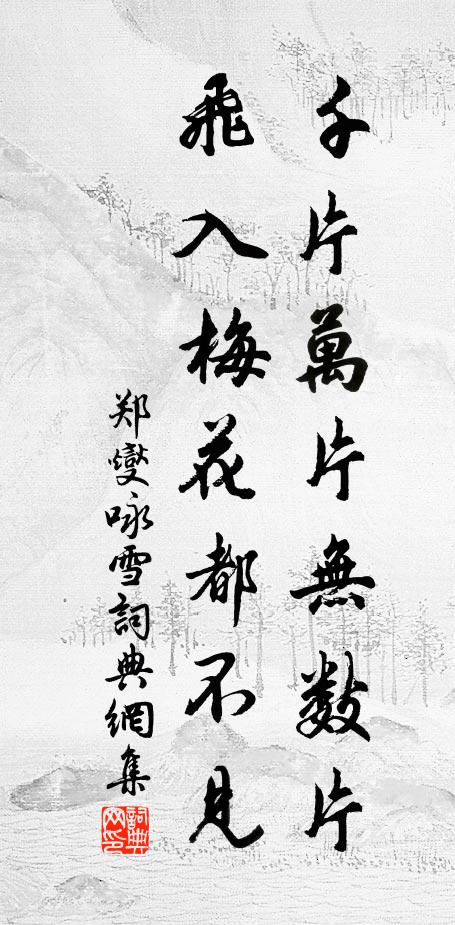 千片萬片無數片
飛入梅花都不見
郑燮咏雪詞典網集
詞典網印